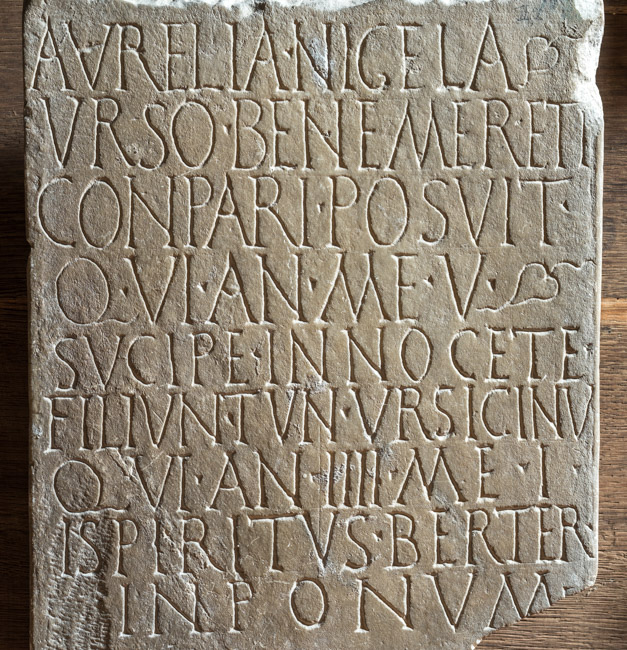 AVRELIA·NIGELA
VRSO·BENEMERETI
CONPARI·POSVIT·
Q·VI·AN·ME·V·
SVCIPE·INNOCETE·
FILIVNTVN·VRSICINV
Q·VI·AN·IIII·ME·I·
ISPIRITVS·BERTER
INPONVM